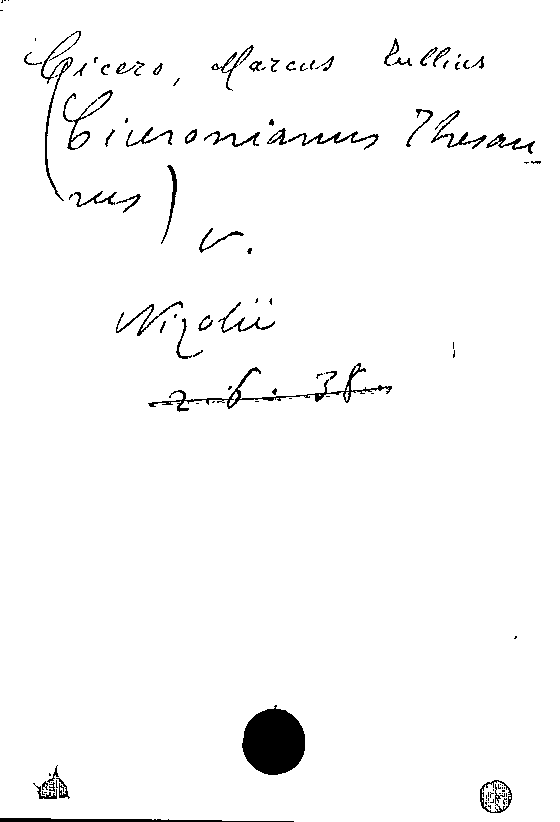 Cicero, Marcus Tullius
(Ciceronianus Thesau
rus)
v.
Nizolii
2.6:38.